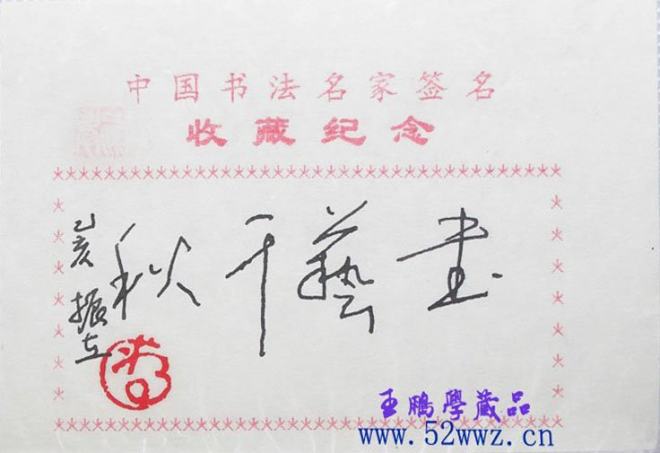 中国书法名家签名
收藏纪念
書藝千秋
己亥 振立
王鹏學藏品
www.52wwz.cn